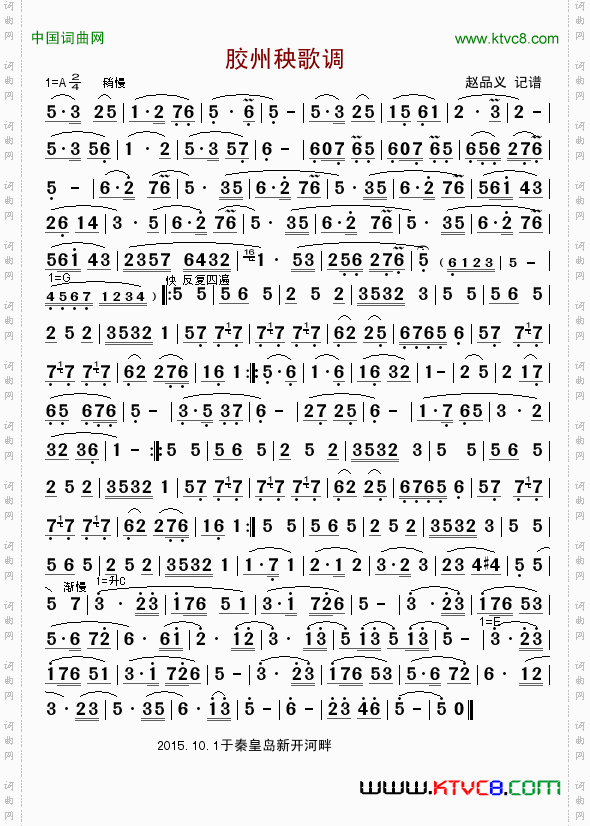 中国词曲网
www.ktvc8.com
胶州秧歌调
1=A 2/4 稍慢
赵品义 记谱
5·3 25 | 1·2 76 | 5·6 | 5 - | 5·3 25 | 15 61 | 2·3 | 2 - |
5·3 56 | 1·2 | 5·3 57 | 6 - | 607 65 | 607 65 | 656 276 |
5 - | 6·2 76 | 5· 35 | 6·2 76 | 5· 35 | 6·2 76 | 561 43 |
26 14 | 3·5 | 6·2 76 | 5· 35 | 6·2 76 | 5· 35 | 6·2 76 |
561 43 | 2357 6432 | 16 1· 53 | 256 276 | 5 (6123 | 5 - |
1=G 快 反复四遍
4567 1234) |: 5 5 | 5 6 5 | 2 5 2 | 3532 3 | 5 5 | 5 6 5 |
2 5 2 | 3532 1 | 57 717 | 717 717 | 62 25 | 6765 6 | 57 717 |
717 717 | 62 276 | 16 1 :|: 5·6 | 1·6 | 16 32 | 1- | 2 5 | 2 17 |
65 676 | 5 - | 3·5 37 | 6 - | 27 25 | 6 - | 1·7 65 | 3·2 |
32 36 | 1 - :|: 5 5 | 5 6 5 | 2 5 2 | 3532 3 | 5 5 | 5 6 5 |
2 5 2 | 3532 1 | 57 717 | 717 717 | 62 25 | 6765 6 | 57 717 |
717 717 | 62 276 | 16 1 :| 5 5 | 5 6 5 | 2 5 2 | 3532 3 | 5 5 |
5 6 5 | 2 5 2 | 3532 1 | 1·7 1 | 2·1 2 | 3·2 3 | 23 4#4 | 5 5 |
渐慢 1=升C
5 7 | 3· 23 | 176 5 1 | 3·1 726 | 5 - | 3· 23 | 176 53 |
5·6 72 | 6· 61 | 2· 12 | 3· 13 | 5 13 | 5·2 | 5 - | 3· 23 |
1=E
176 51 | 3·1 726 | 5 - | 3· 23 | 176 53 | 5·6 72 | 6· 12 |
3· 23 | 5· 35 | 6·13 | 5 - | 6 - | 23 46 | 5 - | 5 0 ‖
2015.10.1于秦皇岛新开河畔
www.KTVC8.com
词曲网